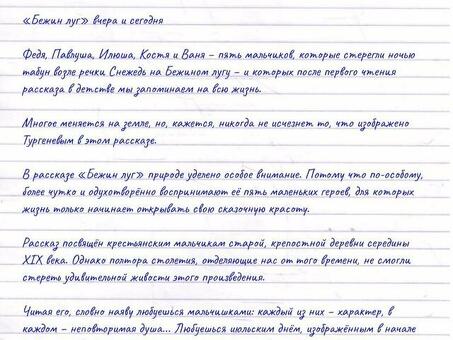 «Бежин луг» вчера и сегодня
Федя, Павлуша, Илюша, Костя и Ваня – пять мальчиков, которые стерегли ночью
табун возле речки Снежедь на Бежином лугу – и которых после первого чтения
рассказа в детстве мы запоминаем на всю жизнь.
Многое меняется на земле, но, кажется, никогда не исчезнет то, что изображено
Тургеневым в этом рассказе.
В рассказе «Бежин луг» природе уделено особое внимание. Потому что по-особому,
более чутко и одухотворённо воспринимают её пять маленьких героев, для которых
жизнь только начинает открывать свою сказочную красоту.
Рассказ посвящён крестьянским мальчикам старой, крепостной деревни середины
XIX века. Однако полтора столетия, отделяющие нас от того времени, не смогли
стереть удивительной живости этого произведения.
Читая его, словно наяву любуешься мальчишками: каждый из них – характер, в
каждом – неповторимая душа... Любуешься июльским днём, изображённым в начале